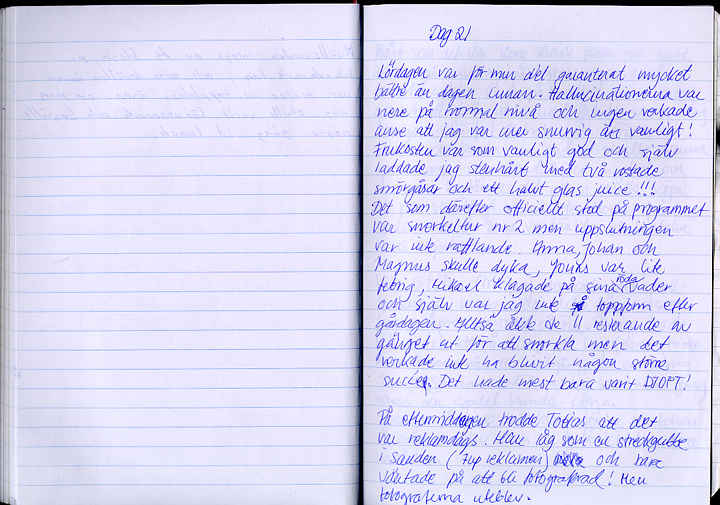 Dag 21
Lördagen var för min del garanterat mycket
bättre än dagen innan. Hallucinationerna var
nere på normal nivå och ingen verkade
anse att jag var mer snurrig än vanligt!
Frukosten var som vanligt god och själv
laddade jag stenhårt med två rostade
smörgåsar och ett halvt glas juice!!!
Det som därefter officiellt stod på programmet
var snorkeltur nr 2 men uppslutningen
var inte rafflande. Anna, Johan och
Magnus skulle dyka, Jonas var lite
febrig, Mikael klagade på sina röda vader
och själv var jag inte i toppform efter
gårdagen. Alltså åkte de 11 resterande av
gänget ut för att snorkla men det
verkade inte ha blivit någon större
succé. Det hade mest bara varit DJUPT!
På eftermiddagen trodde Tobias att det
var reklamdags. Han låg som en streckgubbe
i sanden (7up reklamen) och bara
väntade på att bli fotograferad! Men
fotograferna uteblev.